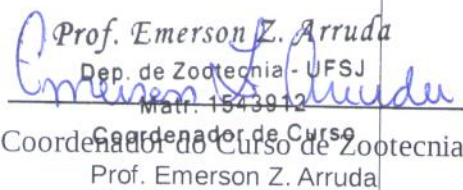 Prof. Emerson Z. Arruda
Dep. de Zootecnia - UFSJ
Emerson Z. Arruda
Matr. 1543912
Coordenador de Curso
Coordenador do Curso de Zootecnia
Prof. Emerson Z. Arruda